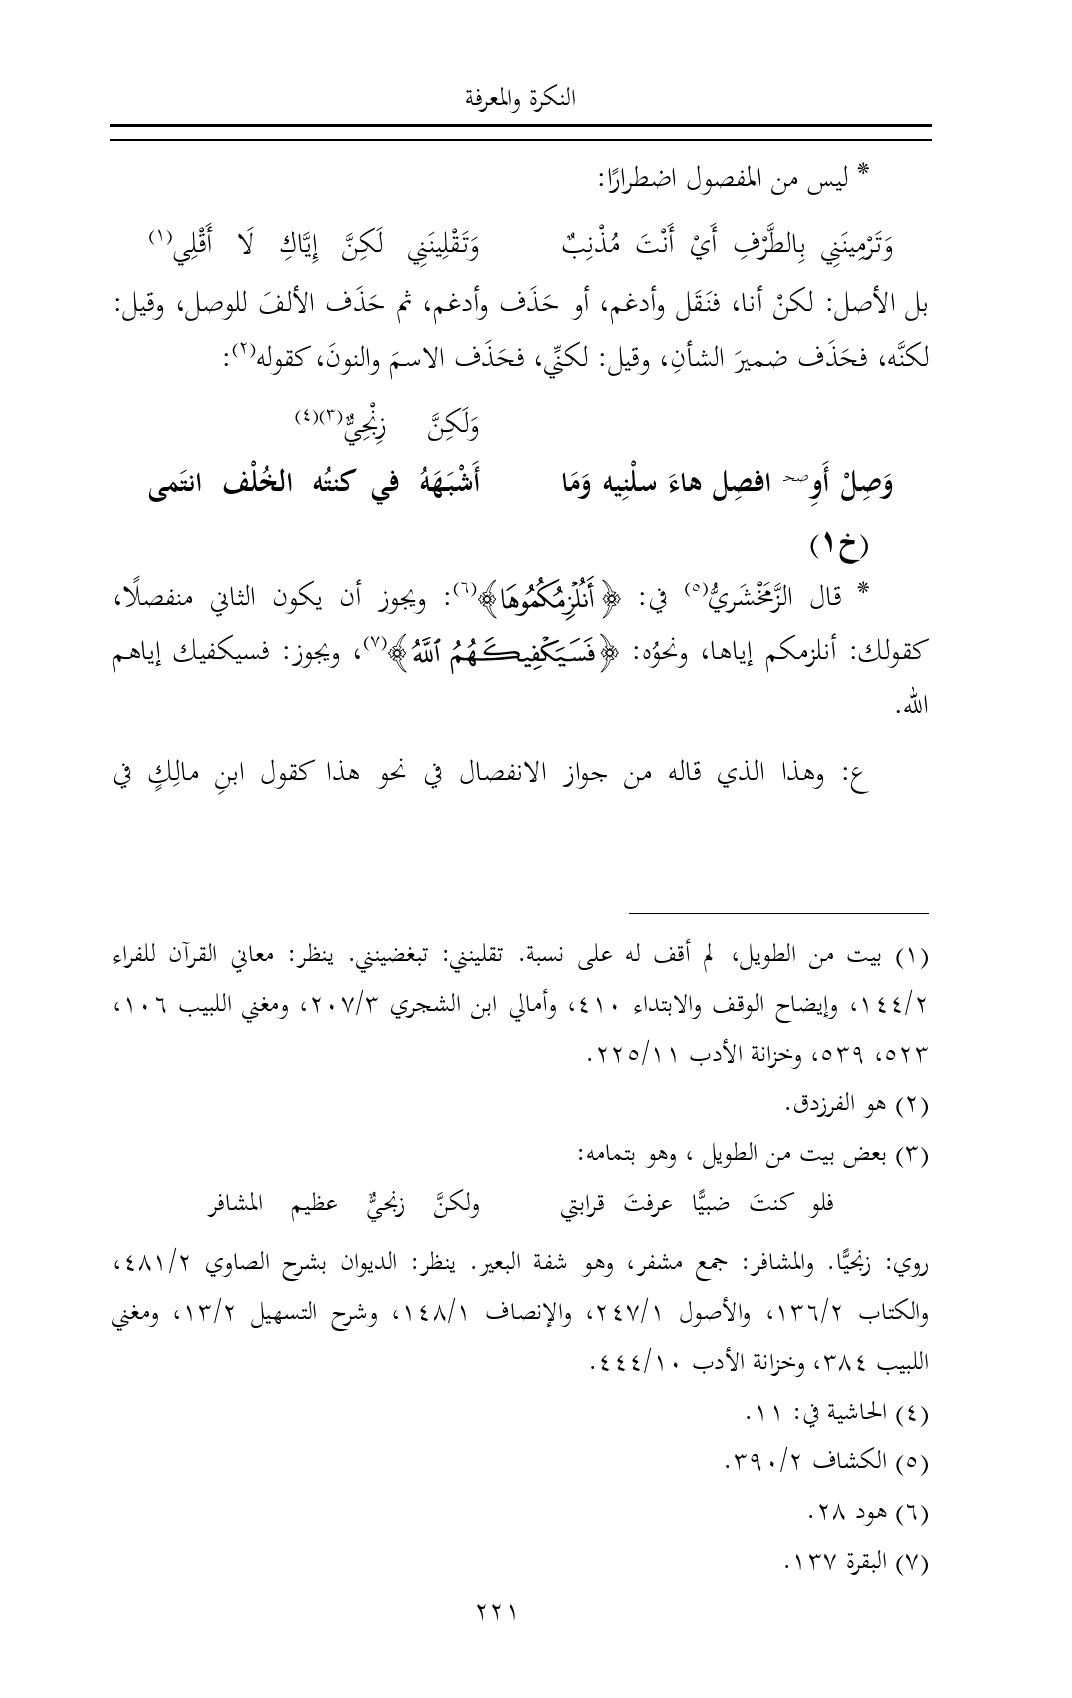 النكرة والمعرفة
* ليس من المفصول اضطرارًا:
وَتَرْمِينَنِي بِالطَّرْفِ أَيْ أَنْتَ مُذْنِبٌ وَتَقْلِينَنِي لَكِنَّ إِيَّاكِ لَا أَقْلِي(١)
بل الأصل: لكنْ أنا، فنَقَل وأدغم، أو حَذَف وأدغم، ثم حَذَف الألفَ للوصل، وقيل:
لكنَّه، فحَذَف ضميرَ الشأنِ، وقيل: لكنِّي، فحَذَف الاسمَ والنونَ، كقوله(٢):
وَلَكِنَّ زِنْجِيٌّ(٣)(٤)
وَصِلْ أَوِ صح افصِل هاءَ سلْنِيه وَمَا أَشْبَهَهُ في كنتُه الخُلْف انتَمى
(خ١)
* قال الزَّمَخْشَريُّ(٥) في: ﴿أَنُلْزِمُكُمُوهَا﴾(٦): ويجوز أن يكون الثاني منفصلًا،
كقولك: أنلزمكم إياها، ونحوُه: ﴿فَسَيَكْفِيكَهُمُ ٱللَّهُ﴾(٧)، ويجوز: فسيكفيك إياهم
الله.
ع: وهذا الذي قاله من جواز الانفصال في نحو هذا كقول ابنِ مالِكٍ في
(١) بيت من الطويل، لم أقف له على نسبة. تقلينني: تبغضينني. ينظر: معاني القرآن للفراء
١٤٤/٢، وإيضاح الوقف والابتداء ٤١٠، وأمالي ابن الشجري ٢٠٧/٣، ومغني اللبيب ١٠٦،
٥٢٣، ٥٣٩، وخزانة الأدب ٢٢٥/١١.
(٢) هو الفرزدق.
(٣) بعض بيت من الطويل ، وهو بتمامه:
فلو كنتَ ضبيًّا عرفتَ قرابتي ولكنَّ زنجيٌّ عظيم المشافر
روي: زنجيًّا. والمشافر: جمع مشفر، وهو شفة البعير. ينظر: الديوان بشرح الصاوي ٤٨١/٢،
والكتاب ١٣٦/٢، والأصول ٢٤٧/١، والإنصاف ١٤٨/١، وشرح التسهيل ١٣/٢، ومغني
اللبيب ٣٨٤، وخزانة الأدب ٤٤٤/١٠.
(٤) الحاشية في: ١١.
(٥) الكشاف ٣٩٠/٢.
(٦) هود ٢٨.
(٧) البقرة ١٣٧.
٢٢١